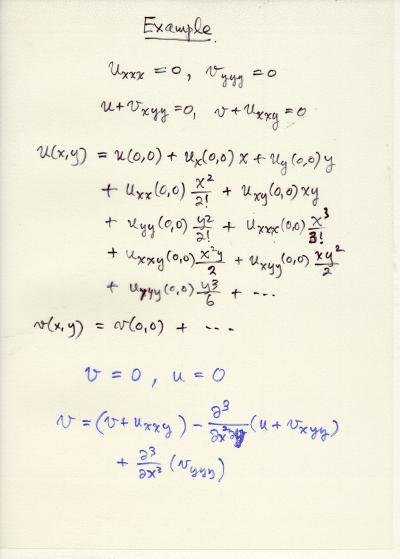 Example.
u_xxx = 0, v_yyy = 0
u + v_xyy = 0, v + u_xxy = 0
u(x,y) = u(0,0) + u_x(0,0) x + u_y(0,0) y
+ u_xx(0,0) x²/2! + u_xy(0,0) xy
+ u_yy(0,0) y²/2! + u_xxx(0,0) x³/3!
+ u_xxy(0,0) x²y/2 + u_xyy(0,0) xy²/2
+ u_yyy(0,0) y³/6 + ···
v(x,y) = v(0,0) + ···
v = 0, u = 0
v = (v + u_xxy) − ∂³/∂x²∂y (u + v_xyy)
+ ∂³/∂x³ (v_yyy)